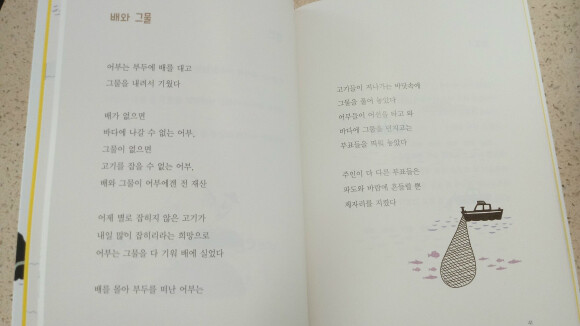 배와 그물
어부는 부두에 배를 대고
그물을 내려서 기웠다
배가 없으면
바다에 나갈 수 없는 어부,
그물이 없으면
고기를 잡을 수 없는 어부,
배와 그물이 어부에겐 전 재산
어제 별로 잡히지 않은 고기가
내일 많이 잡히리라는 희망으로
어부는 그물을 다 기워 배에 실었다
배를 몰아 부두를 떠난 어부는
고기들이 지나가는 바닷속에
그물을 풀어 놓았다
어부들이 어선을 타고 와
바다에 그물을 던지고는
부표들을 띄워 놓았다
주인이 다 다른 부표들은
파도와 바람에 흔들릴 뿐
제자리를 지켰다